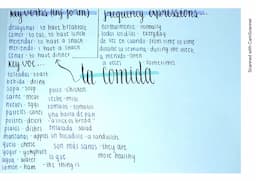 key verbs (inf form)
desayunar - to have breakfast
comer - to eat, to have lunch
merendar - to have a snack
merendo - I have a snack
cenar - to have dinner
frequency expressions
normalmente - normally
todos los días - everyday
de vez en cuando - from time to time
durante la semana - during the week
a menudo - often
a veces - sometimes
la comida
key voc...
tostadas - toast
bebida - drink
sopa - soup
carne - meat
huevos - eggs
pasteles - cakes
postres - desert
platos - dishes
manzanas - apples
queso - cheese
yogur - yoghurt
agua - water
jamón - ham
pollo - chicken
leche - milk
tomates - tomatoes
una barra de pan
"a stick of bread"
ensalada - salad
un bocadillo - a sandwich
son más sanos - they are
more healthy
lo que
- the thing is
Scanned with CamScanner